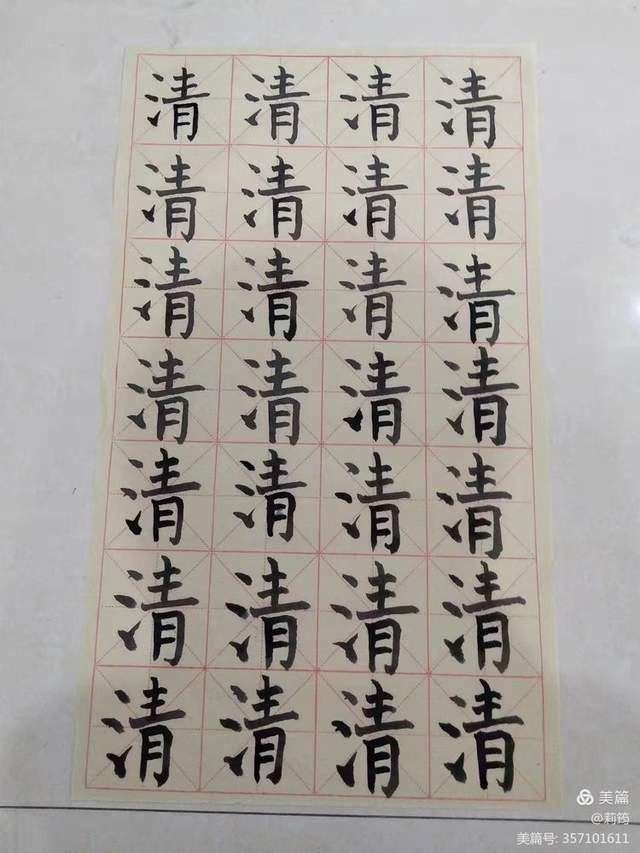 清清清清
清清清清
清清清清
清清清清
清清清清
清清清清
清清清清
美篇
@莉筠
美篇号: 357101611